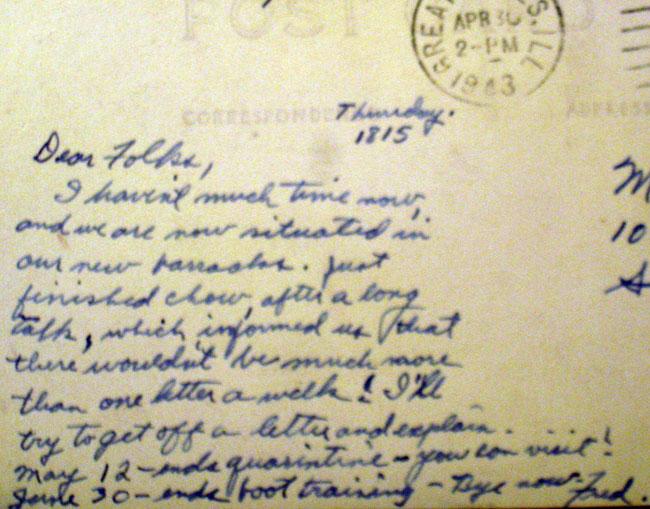 POST CARD
GREAT LAKES, ILL
APR 30
2-PM
1943
CORRESPONDENCE ADDRESS
Thursday.
1815
Dear Folks,
I haven't much time now,
and we are now situated in
our new barracks. Just
finished chow, after a long
talk, which informed us that
there wouldn't be much more
than one letter a week! I'll
try to get off a letter and explain.
May 12 - ends quarintine - you can visit!
June 30 - ends boot training - Bye now - Fred.
M
10
S